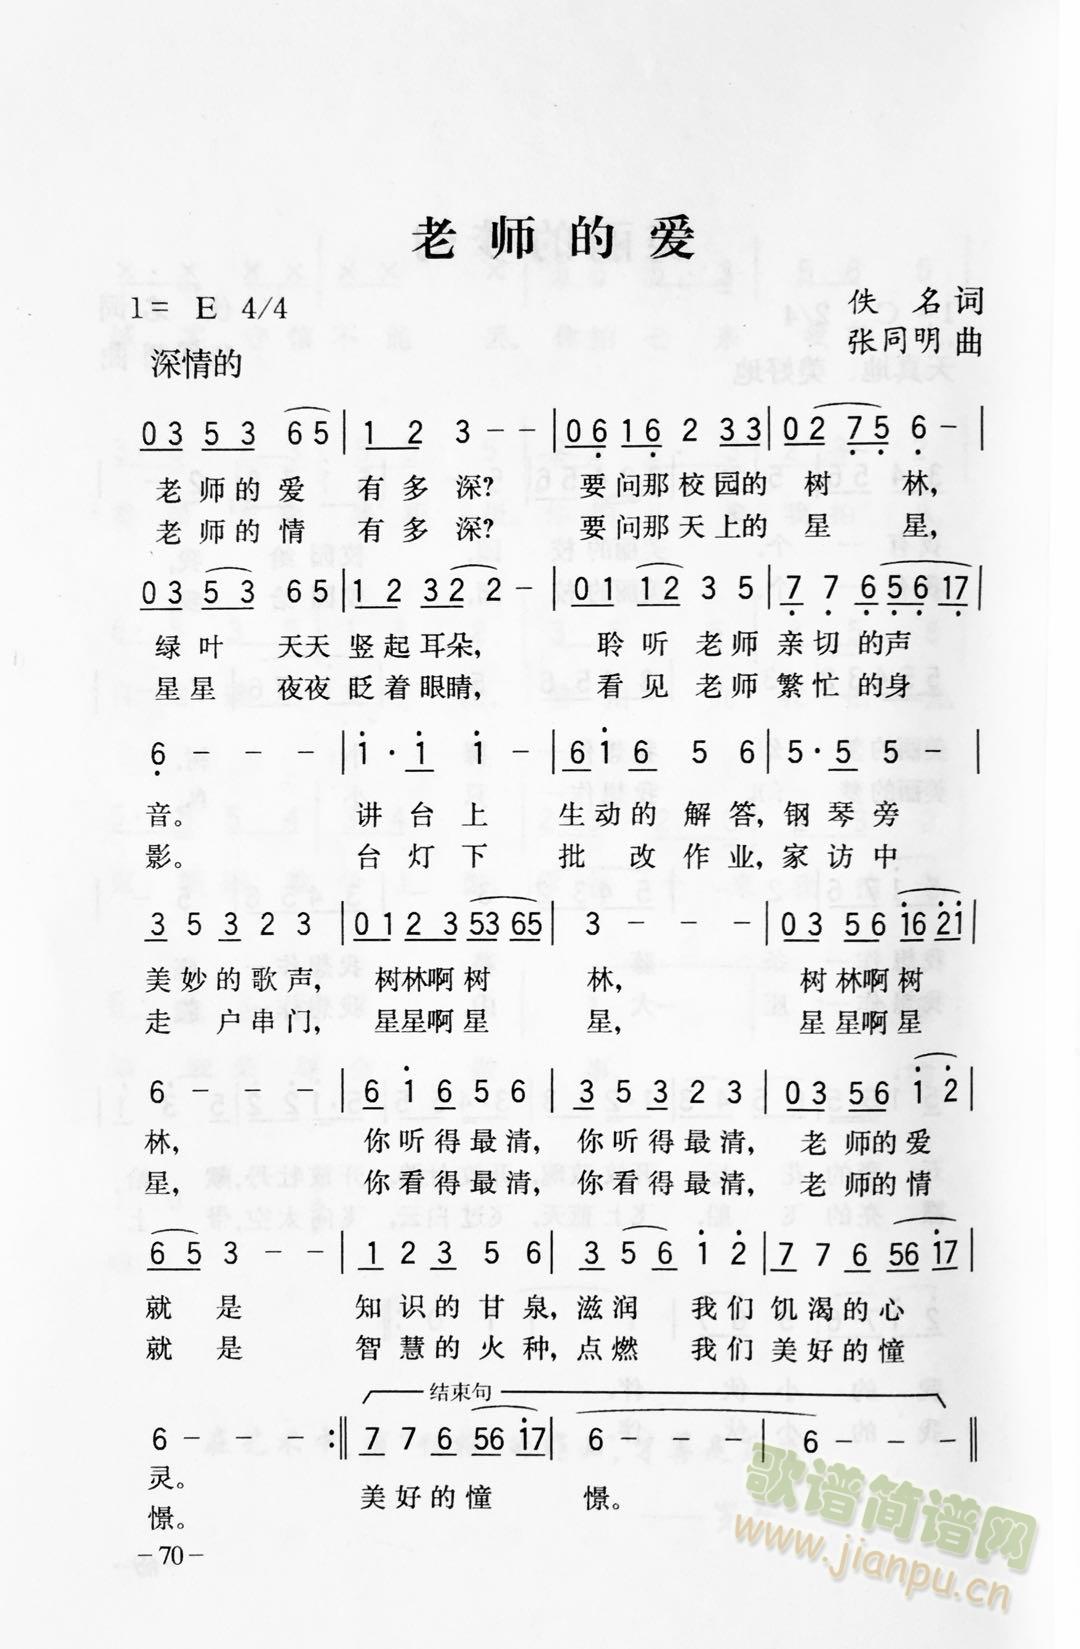 老师的爱
1= E 4/4
佚 名 词
张同明 曲
深情的
0 3 5 3 6 5 | 1 2 3 - - | 0 6 1 6 2 3 3 | 0 2 7 5 6 - |
老师的爱 有多深? 要问那校园的 树 林,
老师的情 有多深? 要问那天上的 星 星,
0 3 5 3 6 5 | 1 2 3 2 2 - | 0 1 1 2 3 5 | 7 7 6 5 6 1 7 |
绿叶 天天 竖起耳朵, 聆听 老师亲切的声
星星 夜夜 眨着眼睛, 看见 老师繁忙的身
6 - - - | i · i i - | 6 i 6 5 6 | 5 · 5 5 - |
音。 讲台上 生动的解答, 钢琴旁
影。 台灯下 批改作业, 家访中
3 5 3 2 3 | 0 1 2 3 5 3 6 5 | 3 - - | 0 3 5 6 i 6 2 i |
美妙的歌声, 树林啊树 林, 树林啊树
走户串门, 星星啊星 星, 星星啊星
6 - - - | 6 i 6 5 6 | 3 5 3 2 3 | 0 3 5 6 i 2 |
林, 你听得最清, 你听得最清, 老师的爱
星, 你看得最清, 你看得最清, 老师的情
6 5 3 - - | 1 2 3 5 6 | 3 5 6 i 2 | 7 7 6 5 6 i 7 |
就是 知识的甘泉, 滋润 我们饥渴的心
就是 智慧的火种, 点燃 我们美好的憧
结束句
6 - - - :|| 7 7 6 5 6 i 7 | 6 - - - | 6 - - - ||
灵。 美好的憧 憬。
憬。
-70-
歌谱简谱网
www.jianpu.cn